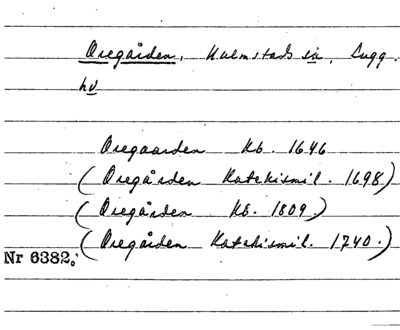 Oregården, Kulmstads sn, Lugg.
hv
Oregaarden Kb. 1646
(Oregården Katekismil. 1698)
(Oregården Kb. 1809.)
(Oregården Katekismil. 1740.)
Nr 6382.